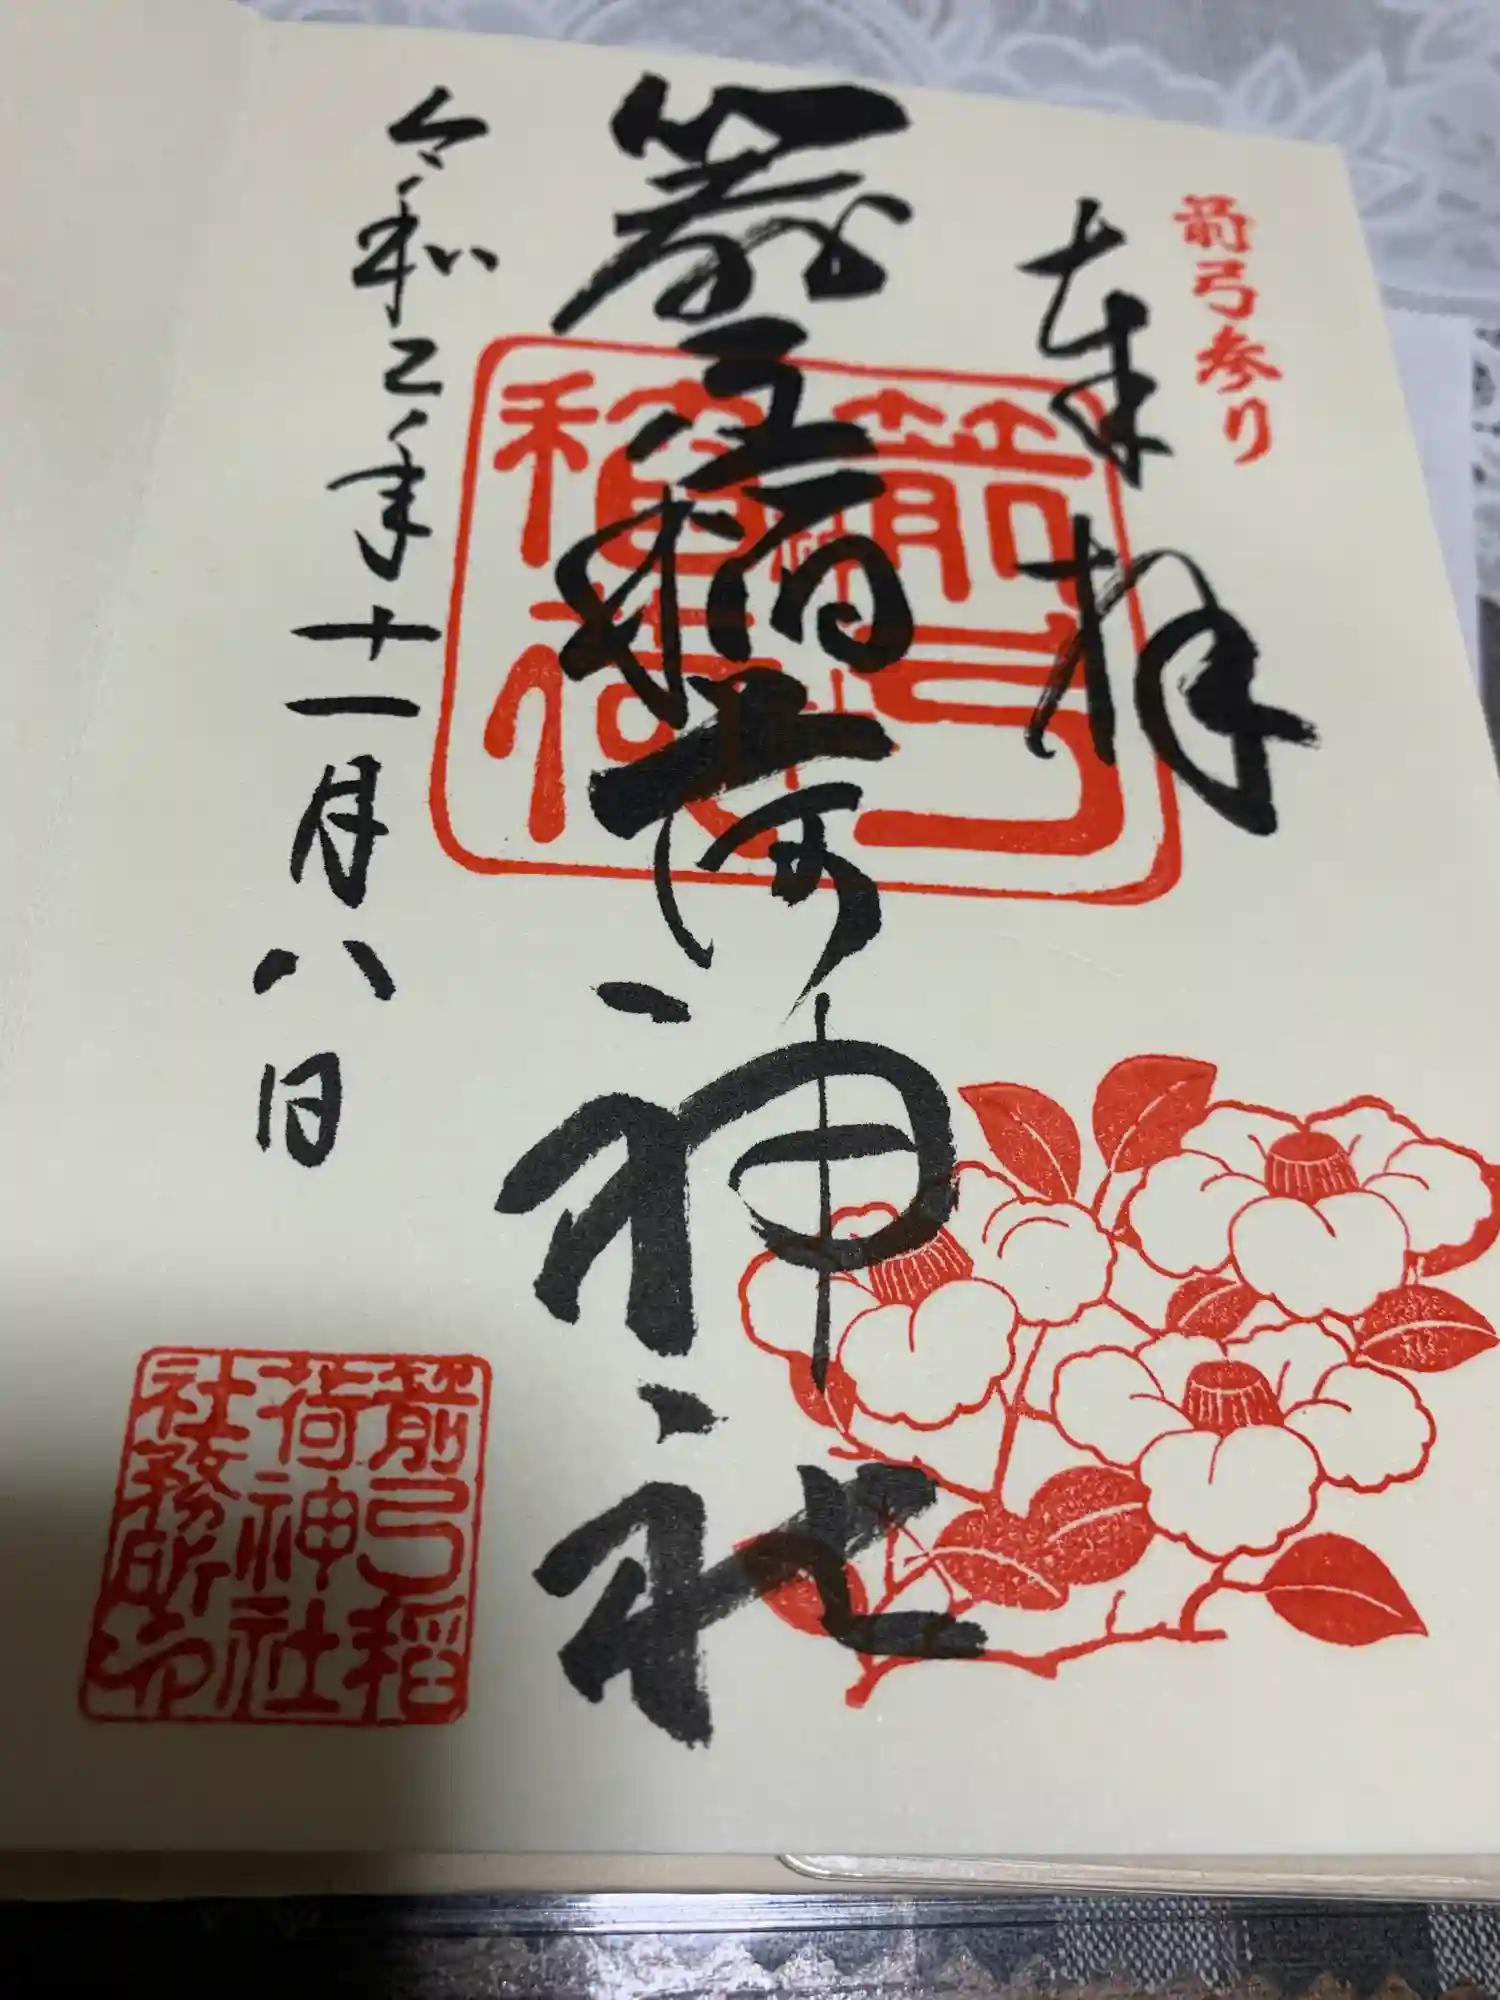 箭弓参り
奉拝
箭弓稲荷神社
箭弓稲荷
令和二年十一月八日
箭弓稲荷神社社務所印